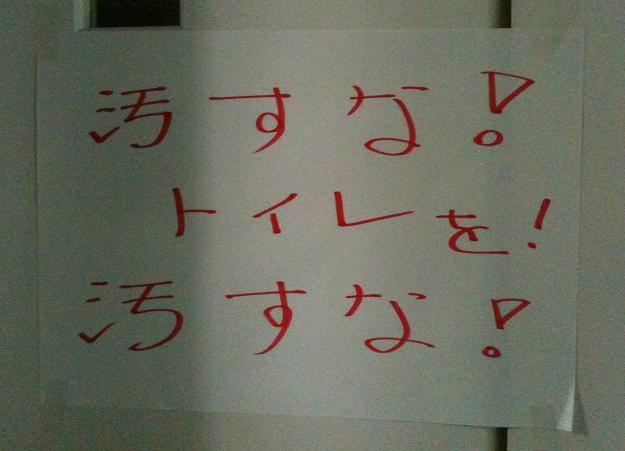 汚すな!
トイレを!
汚すな!